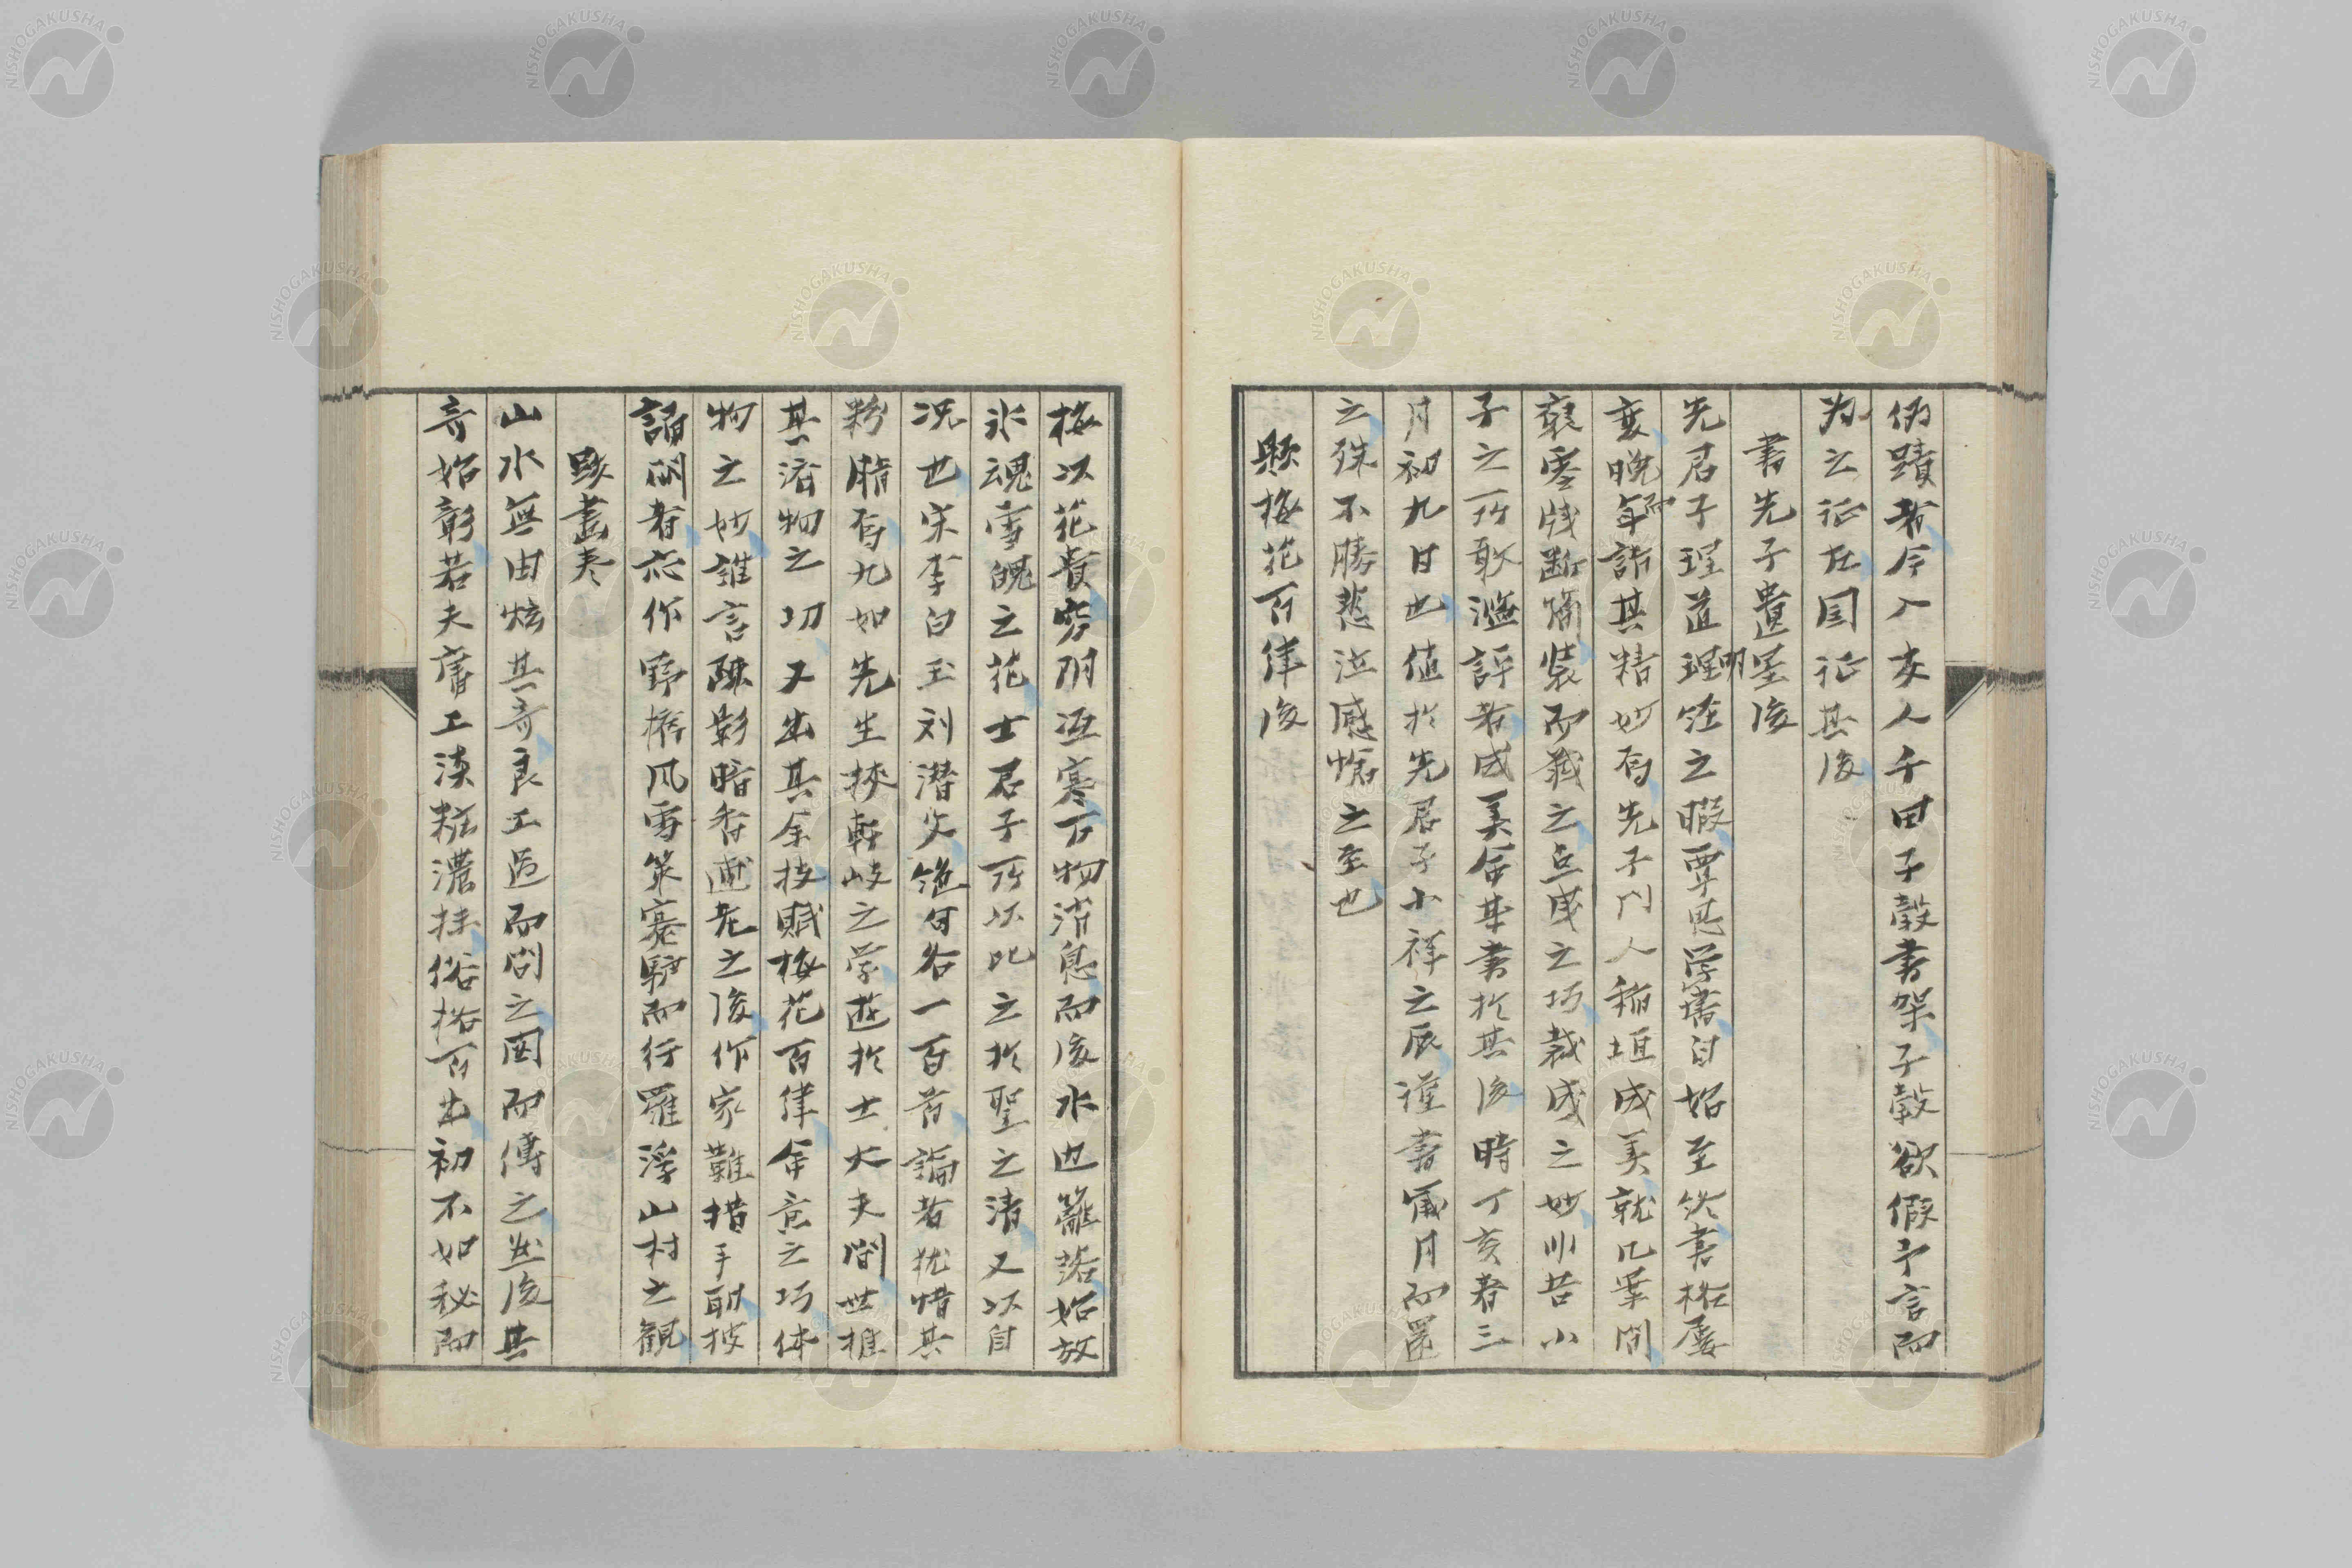 偽蹟者今入友人千田子穀書架子穀欲假予言而
為之證在図證其後
書先子遺墨後
先君子理道理明經之暇覃思学書自始至終書格屢
変晩年而詣其精妙有先子門人稲垣成美就几案間
裒零牋断簡装而裁之点成之巧裁成之妙川苔小
子之所敢濫評者成美命其書於其後時丁亥春三
月初九日也値於先君子小祥之辰謹書歳月而置
之殊不勝悲泣感愴之至也
題梅花百律後
梅以花貴窮阴冱寒万物消息而後水边籬落始放
氷魂雪魄之花士君子所以比之於聖之清又以自
况也宋李白玉刘潜夫絶句各一百首論者犹惜其
粉脂有九如先生挾軒岐之学遊於士大夫間世推
其済物之功又出其余技賦梅花百律命意之巧体
物之妙誰言疎影暗香逋老之後作家難措手耶披
誦酬者忘作野橋风雪策蹇驢而行羅浮山村之観
題畫巻
山水無由炫其奇良工遇而問之図而傳之然後其
奇始彰若夫庸工淡粧濃抹俗格百出初不如秘而
NISHOGAKUSHA